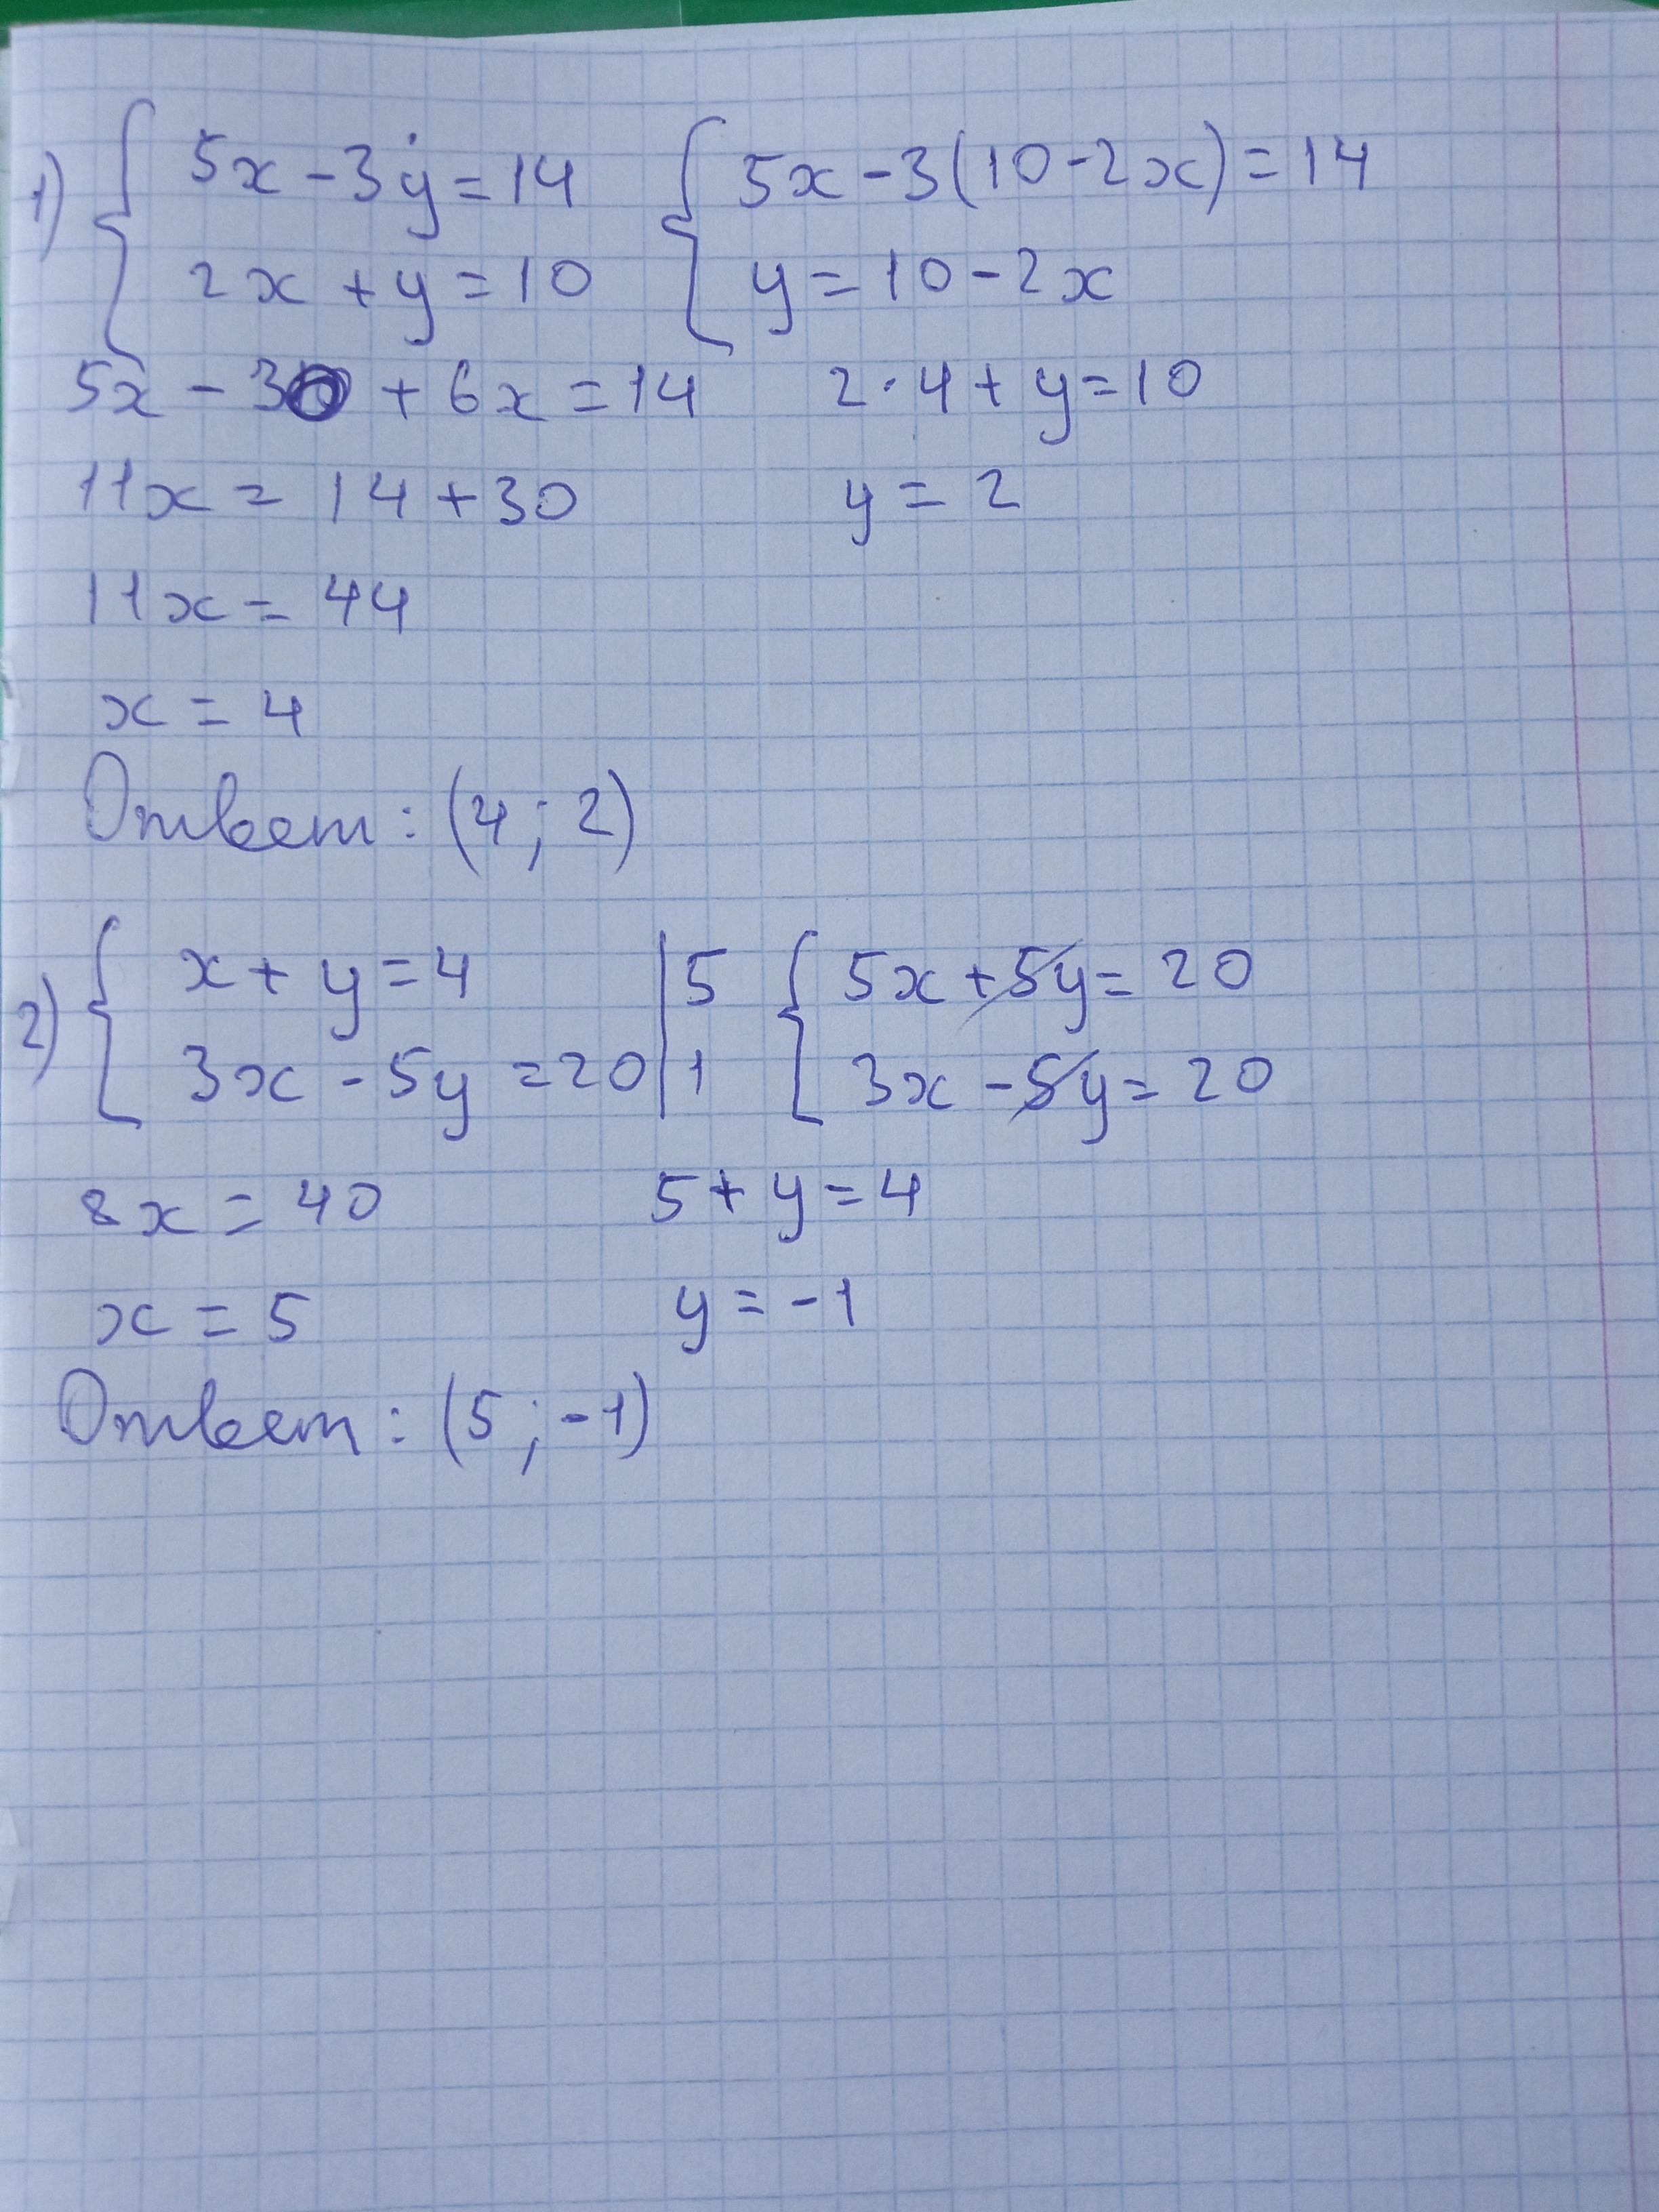 1) { 5x - 3y = 14 { 5x - 3(10 - 2x) = 14
2x + y = 10 y = 10 - 2x
5x - 30 + 6x = 14 2·4 + y = 10
11x = 14 + 30 y = 2
11x = 44
x = 4
Ответ: (4; 2)
2) { x + y = 4 | 5 { 5x + 5y = 20
3x - 5y = 20 | 1 3x - 5y = 20
8x = 40 5 + y = 4
x = 5 y = -1
Ответ: (5; -1)